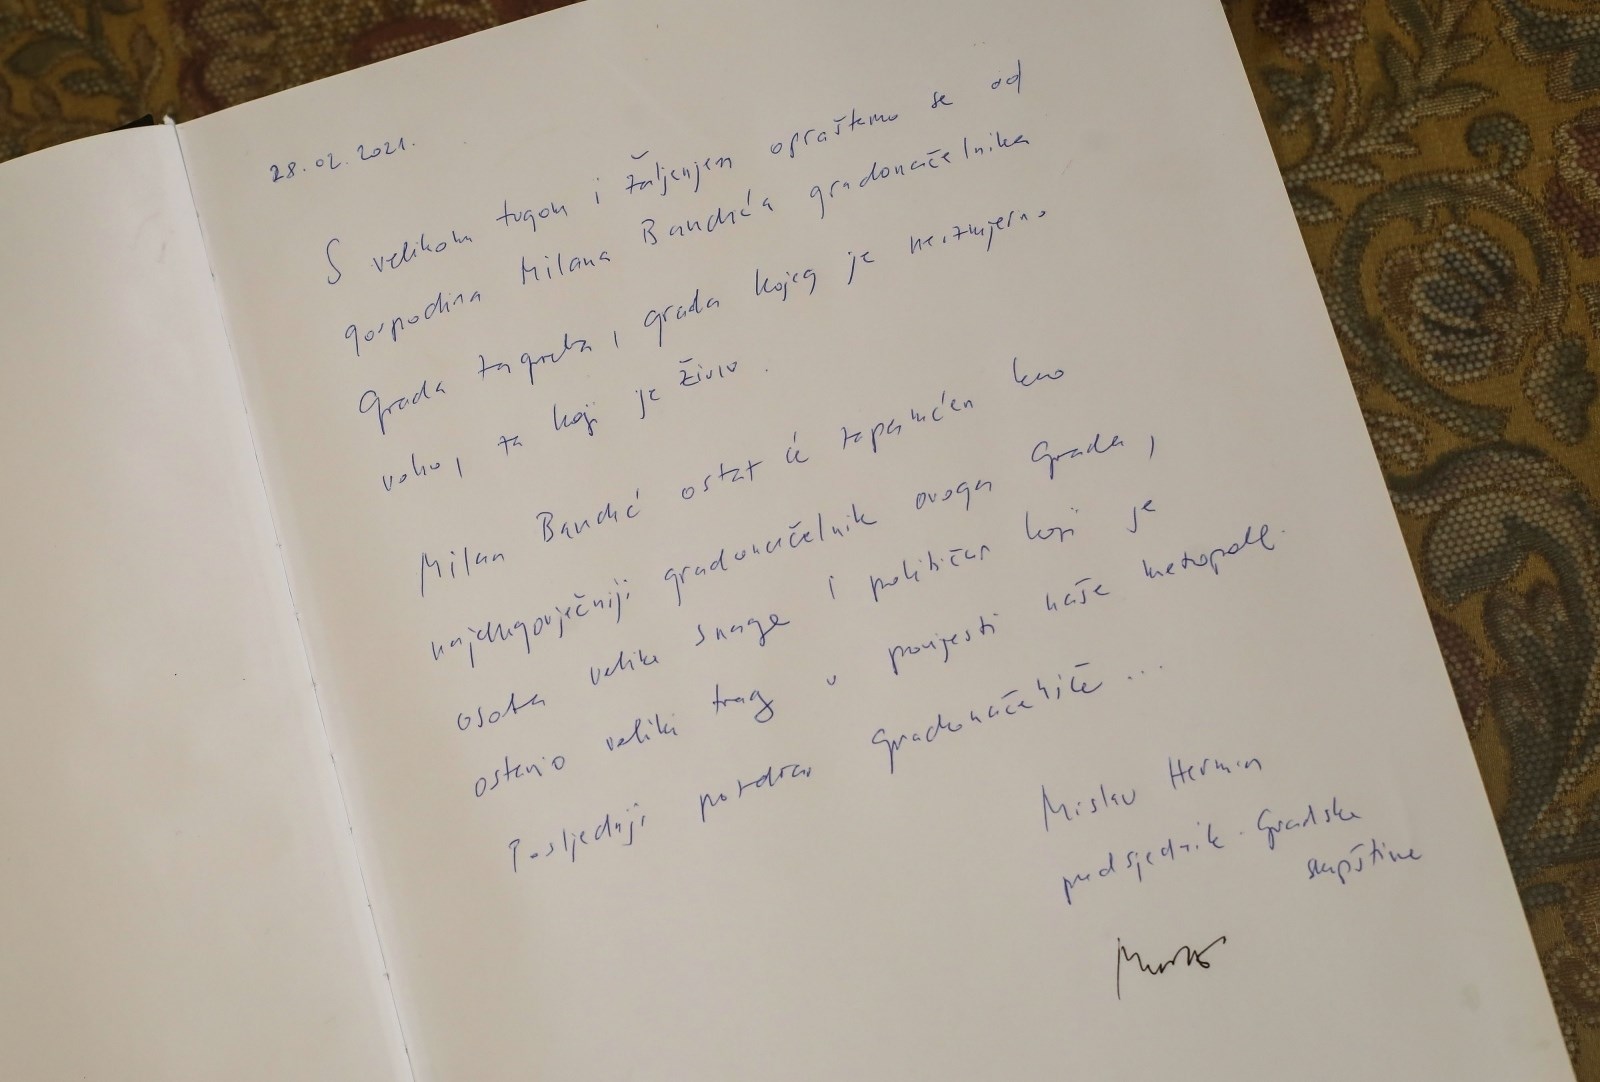 28.02.2021.
S velikom tugom i žaljenjem opraštamo se od
gospodina Milana Bandića gradonačelnika
Grada Zagreba i grada kojeg je neizmjerno
volio, za koji je živio.
Milan Bandić ostat će zapamćen kao
najdugovječniji gradonačelnik ovoga Grada,
osoba velike snage i političar koji je
ostavio veliki trag u povijesti naše metropole.
Posljednji pozdrav gradonačelniče...
Mislav Herman
predsjednik Gradske
skupštine